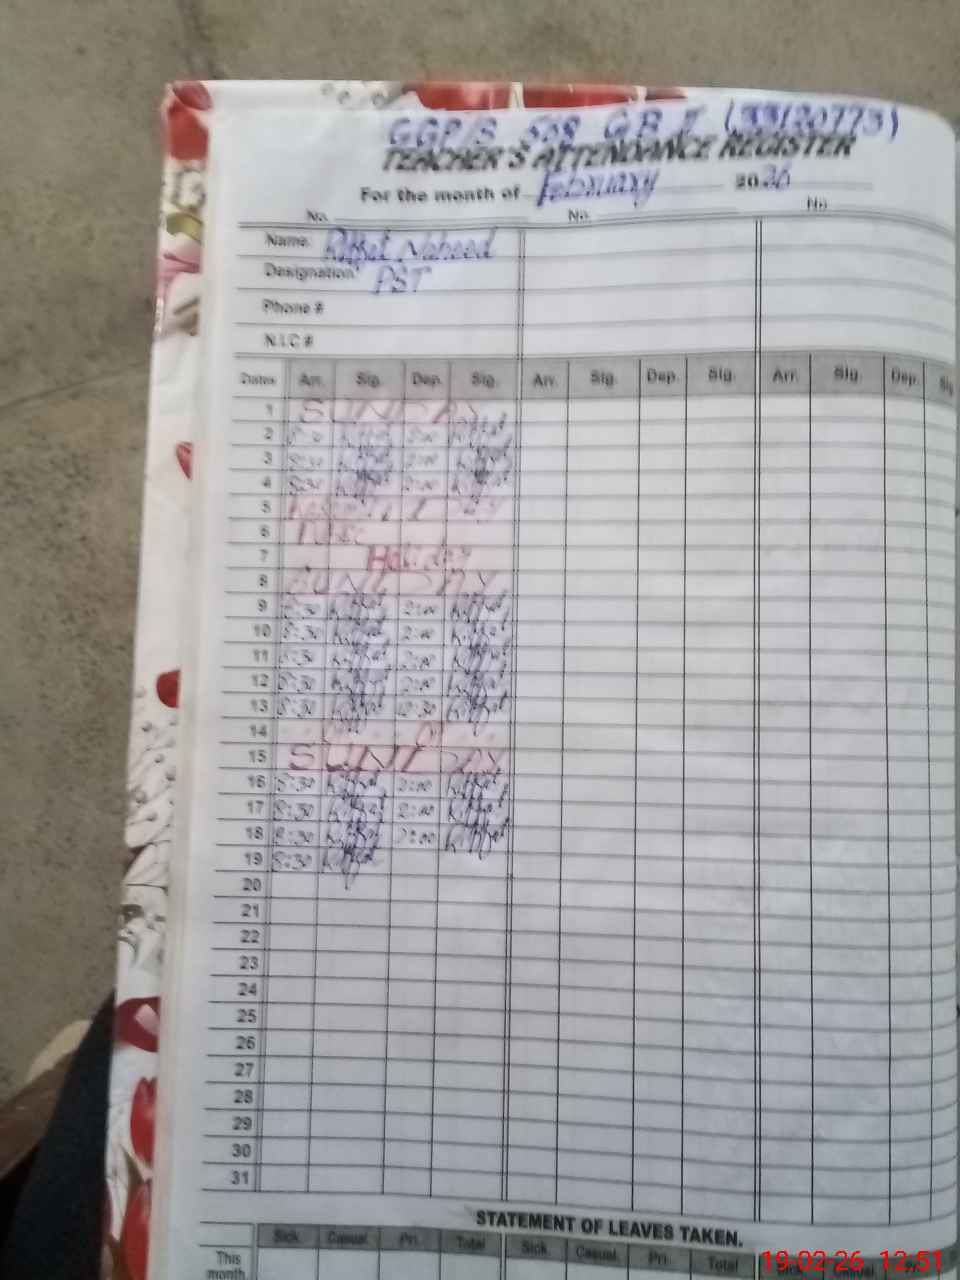 GGP/S 508 GB II (33120773)
TEACHER'S ATTENDANCE REGISTER
For the month of February 2026
No. No. No
Name: Riffat Naheed
Designation: PST
Phone #
N.I.C #
Dates Arr. Sig. Dep. Sig. Arr. Sig. Dep. Sig. Arr. Sig. Dep. Sig
1 SUNDAY
2 8:30 Riffat 2:00 Riffat
3 8:30 Riffat 2:00 Riffat
4 8:30 Riffat 2:00 Riffat
5 Kashmir Day
6
7 Holiday
8 SUNDAY
9 8:30 Riffat 2:00 Riffat
10 8:30 Riffat 2:00 Riffat
11 8:30 Riffat 2:00 Riffat
12 8:30 Riffat 2:00 Riffat
13 8:30 Riffat 12:30 Riffat
14
15 SUNDAY
16 8:30 Riffat 2:00 Riffat
17 8:30 Riffat 2:00 Riffat
18 8:30 Riffat 2:00 Riffat
19 8:30 Riffat
20
21
22
23
24
25
26
27
28
29
30
31
STATEMENT OF LEAVES TAKEN.
Sick. Casual. Pri. Total Sick. Casual. Pri. Total
This month
19-02-26 12:51